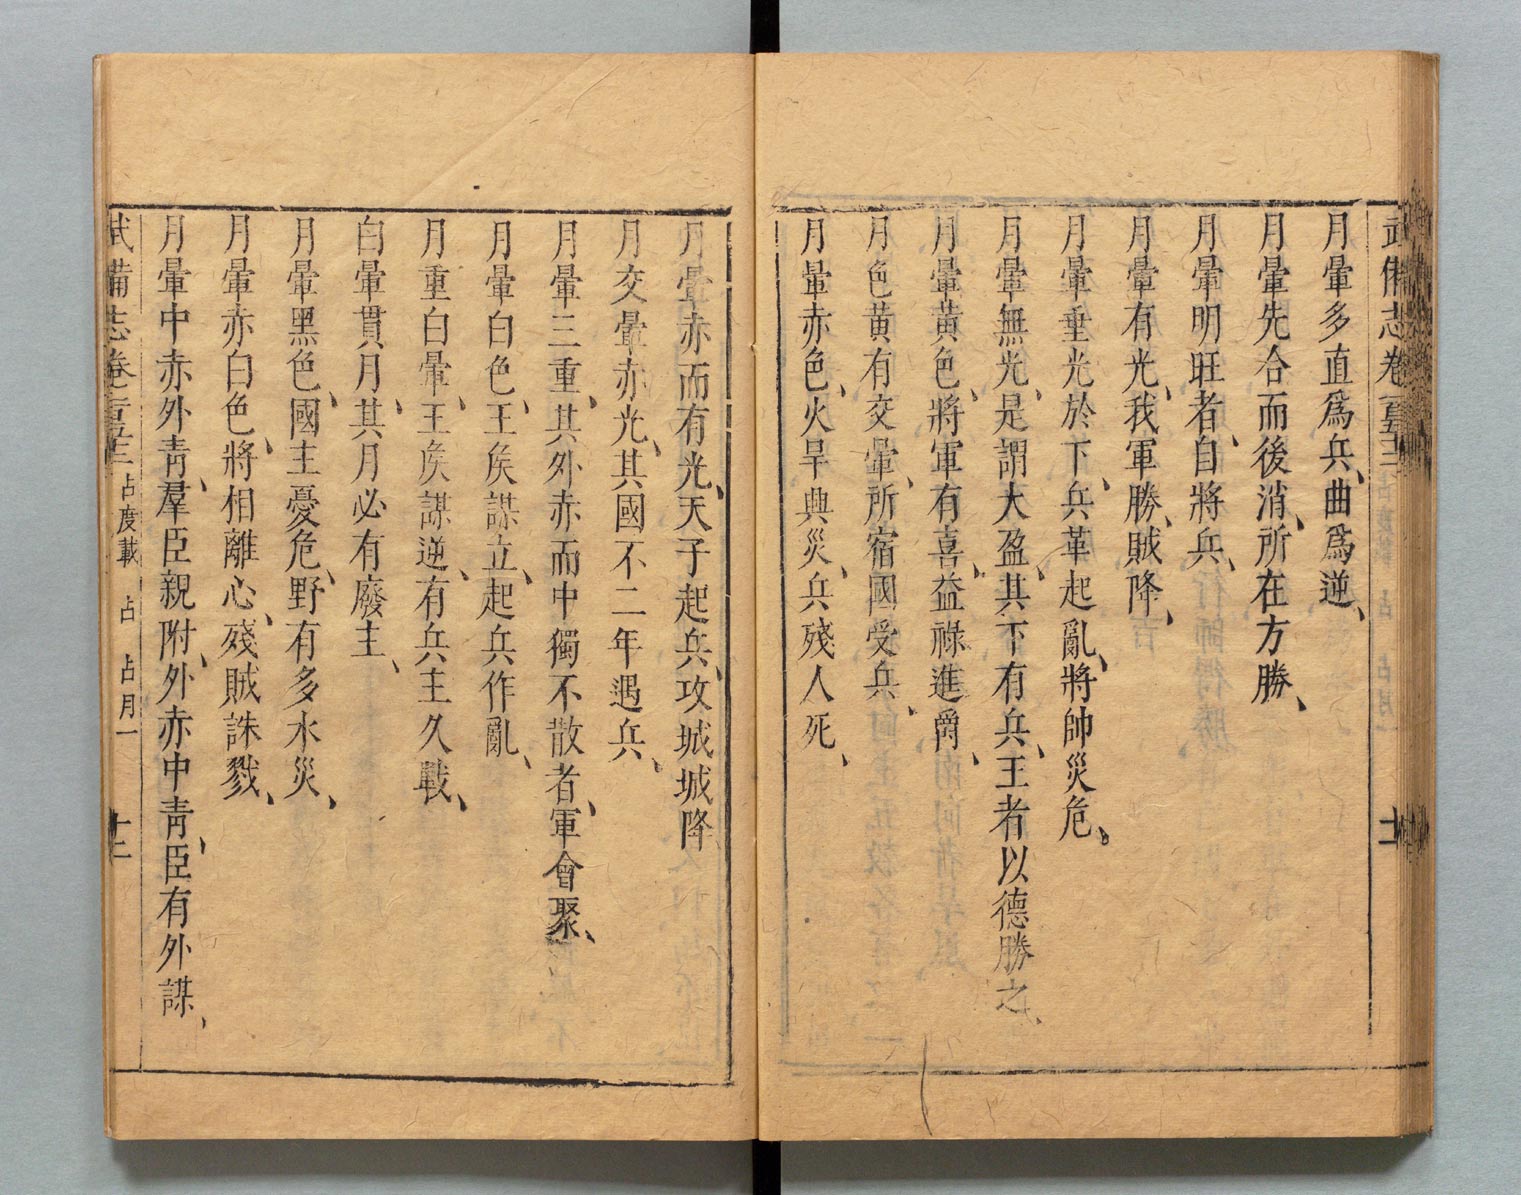 武備志卷一百五十三
十一
月暈多直爲兵、曲爲逆、
月暈先合而後消、所在方勝、
月暈明旺者、自將兵、
月暈有光、我軍勝、賊降、
月暈垂光於下、兵革起亂、將帥災危。
月暈無光、是謂大盈、其下有兵、王者以德勝之、
月暈黃色、將軍有喜、益祿進爵、
月色黃有交暈、所宿國受兵、
月暈赤色、火旱興災、兵殘人死、
月暈赤而有光、天子起兵、攻城城降、
月交暈赤光、其國不二年遇兵、
月暈三重、其外赤而中獨不散者、軍會聚、
月暈白色、王矦謀立、起兵作亂、
月重白暈、王矦謀逆、有兵主久戰、
白暈貫月、其月必有廢主、
月暈黑色、國主憂危、野有多水災、
月暈亦白色、將相離心、殘賊誅戮、
月暈中赤外靑、羣臣親附、外赤中靑、臣有外謀、
武備志卷一百五十三 占度載 占 占月一 十二